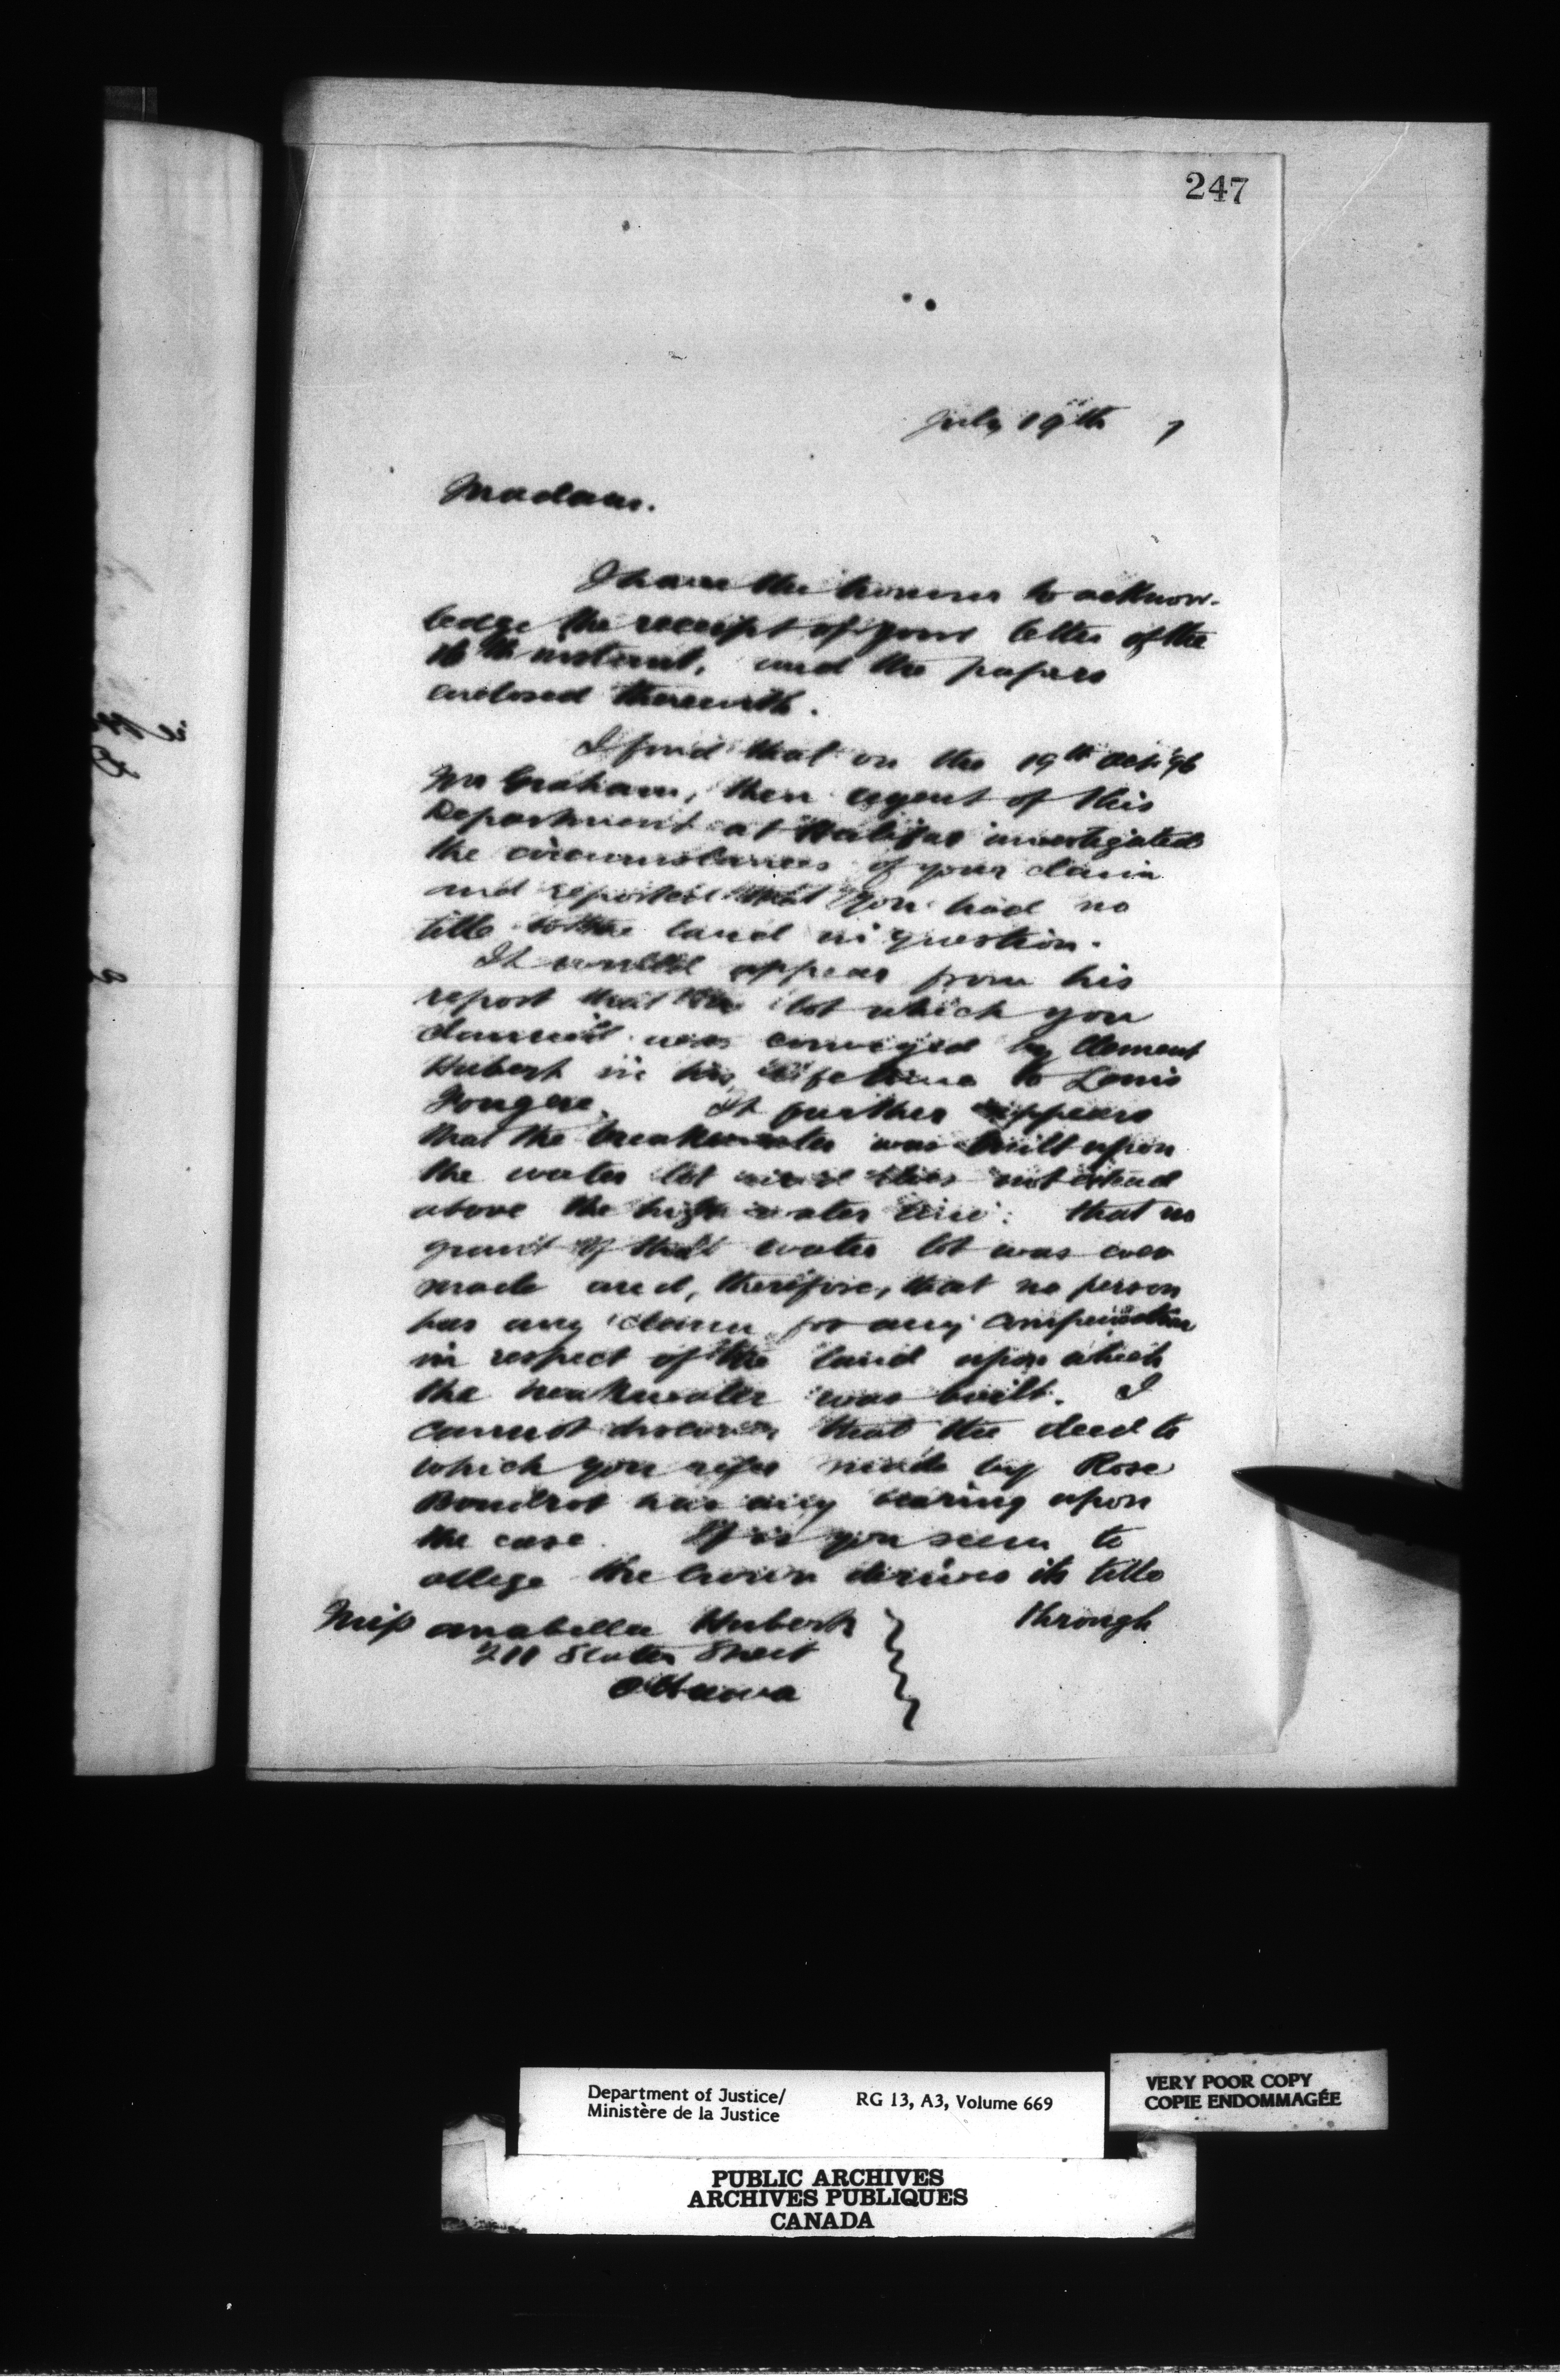 247
July 19th 7
Madam.
I have the honour to acknow-
ledge the receipt of your letter of the
16th instant, and the papers
enclosed therewith.
I find that on the 19th '96
Mr Graham, then agent of this
Department at Halifax investigated
the circumstances of your claim
and reported that you had no
title to the land in question.
It would appear from his
report that the lot which you
claimed was conveyed by Clement
Hubert in his lifetime to Louis
Fougere. It further appears
that the breakwater was built upon
the water lot and does not extend
above the high water line: that no
grant of that water lot was ever
made and, therefore, that no person
has any claim for any compensation
in respect of the land upon which
the breakwater was built. I
cannot discover that the deed to
which you refer made by Rose
Boudrot has any bearing upon
the case. If as you seem to
allege the Crown derives its title
through
Miss Anabella Hubert
211 Slater Street
Ottawa
Department of Justice/
Ministère de la Justice
RG 13, A3, Volume 669
VERY POOR COPY
COPIE ENDOMMAGÉE
PUBLIC ARCHIVES
ARCHIVES PUBLIQUES
CANADA